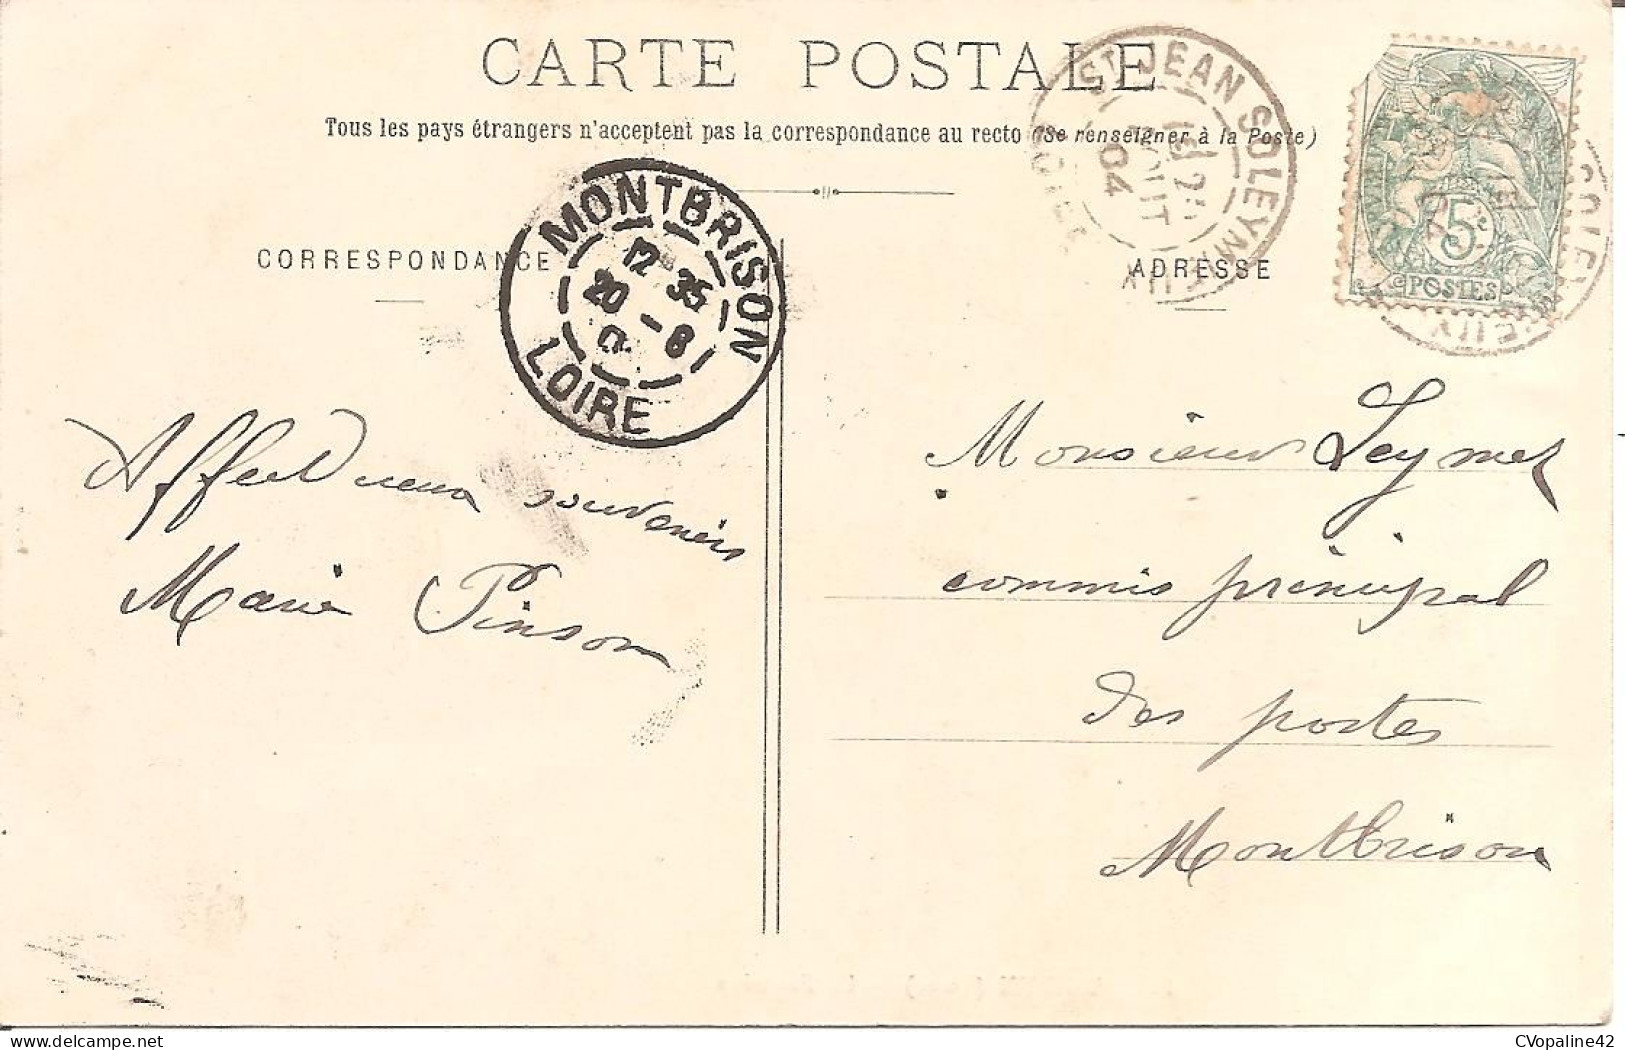 CARTE POSTALE
Tous les pays étrangers n'acceptent pas la correspondance au recto (Se renseigner à la Poste)
CORRESPONDANCE
ADRESSE
MONTBRISON
12 35
20 - 8
LOIRE
ST JEAN SOLEYMIEUX
AOUT
04
LOIRE
5c
POSTES
Affectueux souvenirs
Marie Pinson
Monsieur Leymet
commis principal
des postes
Montbrison
CVopaline42